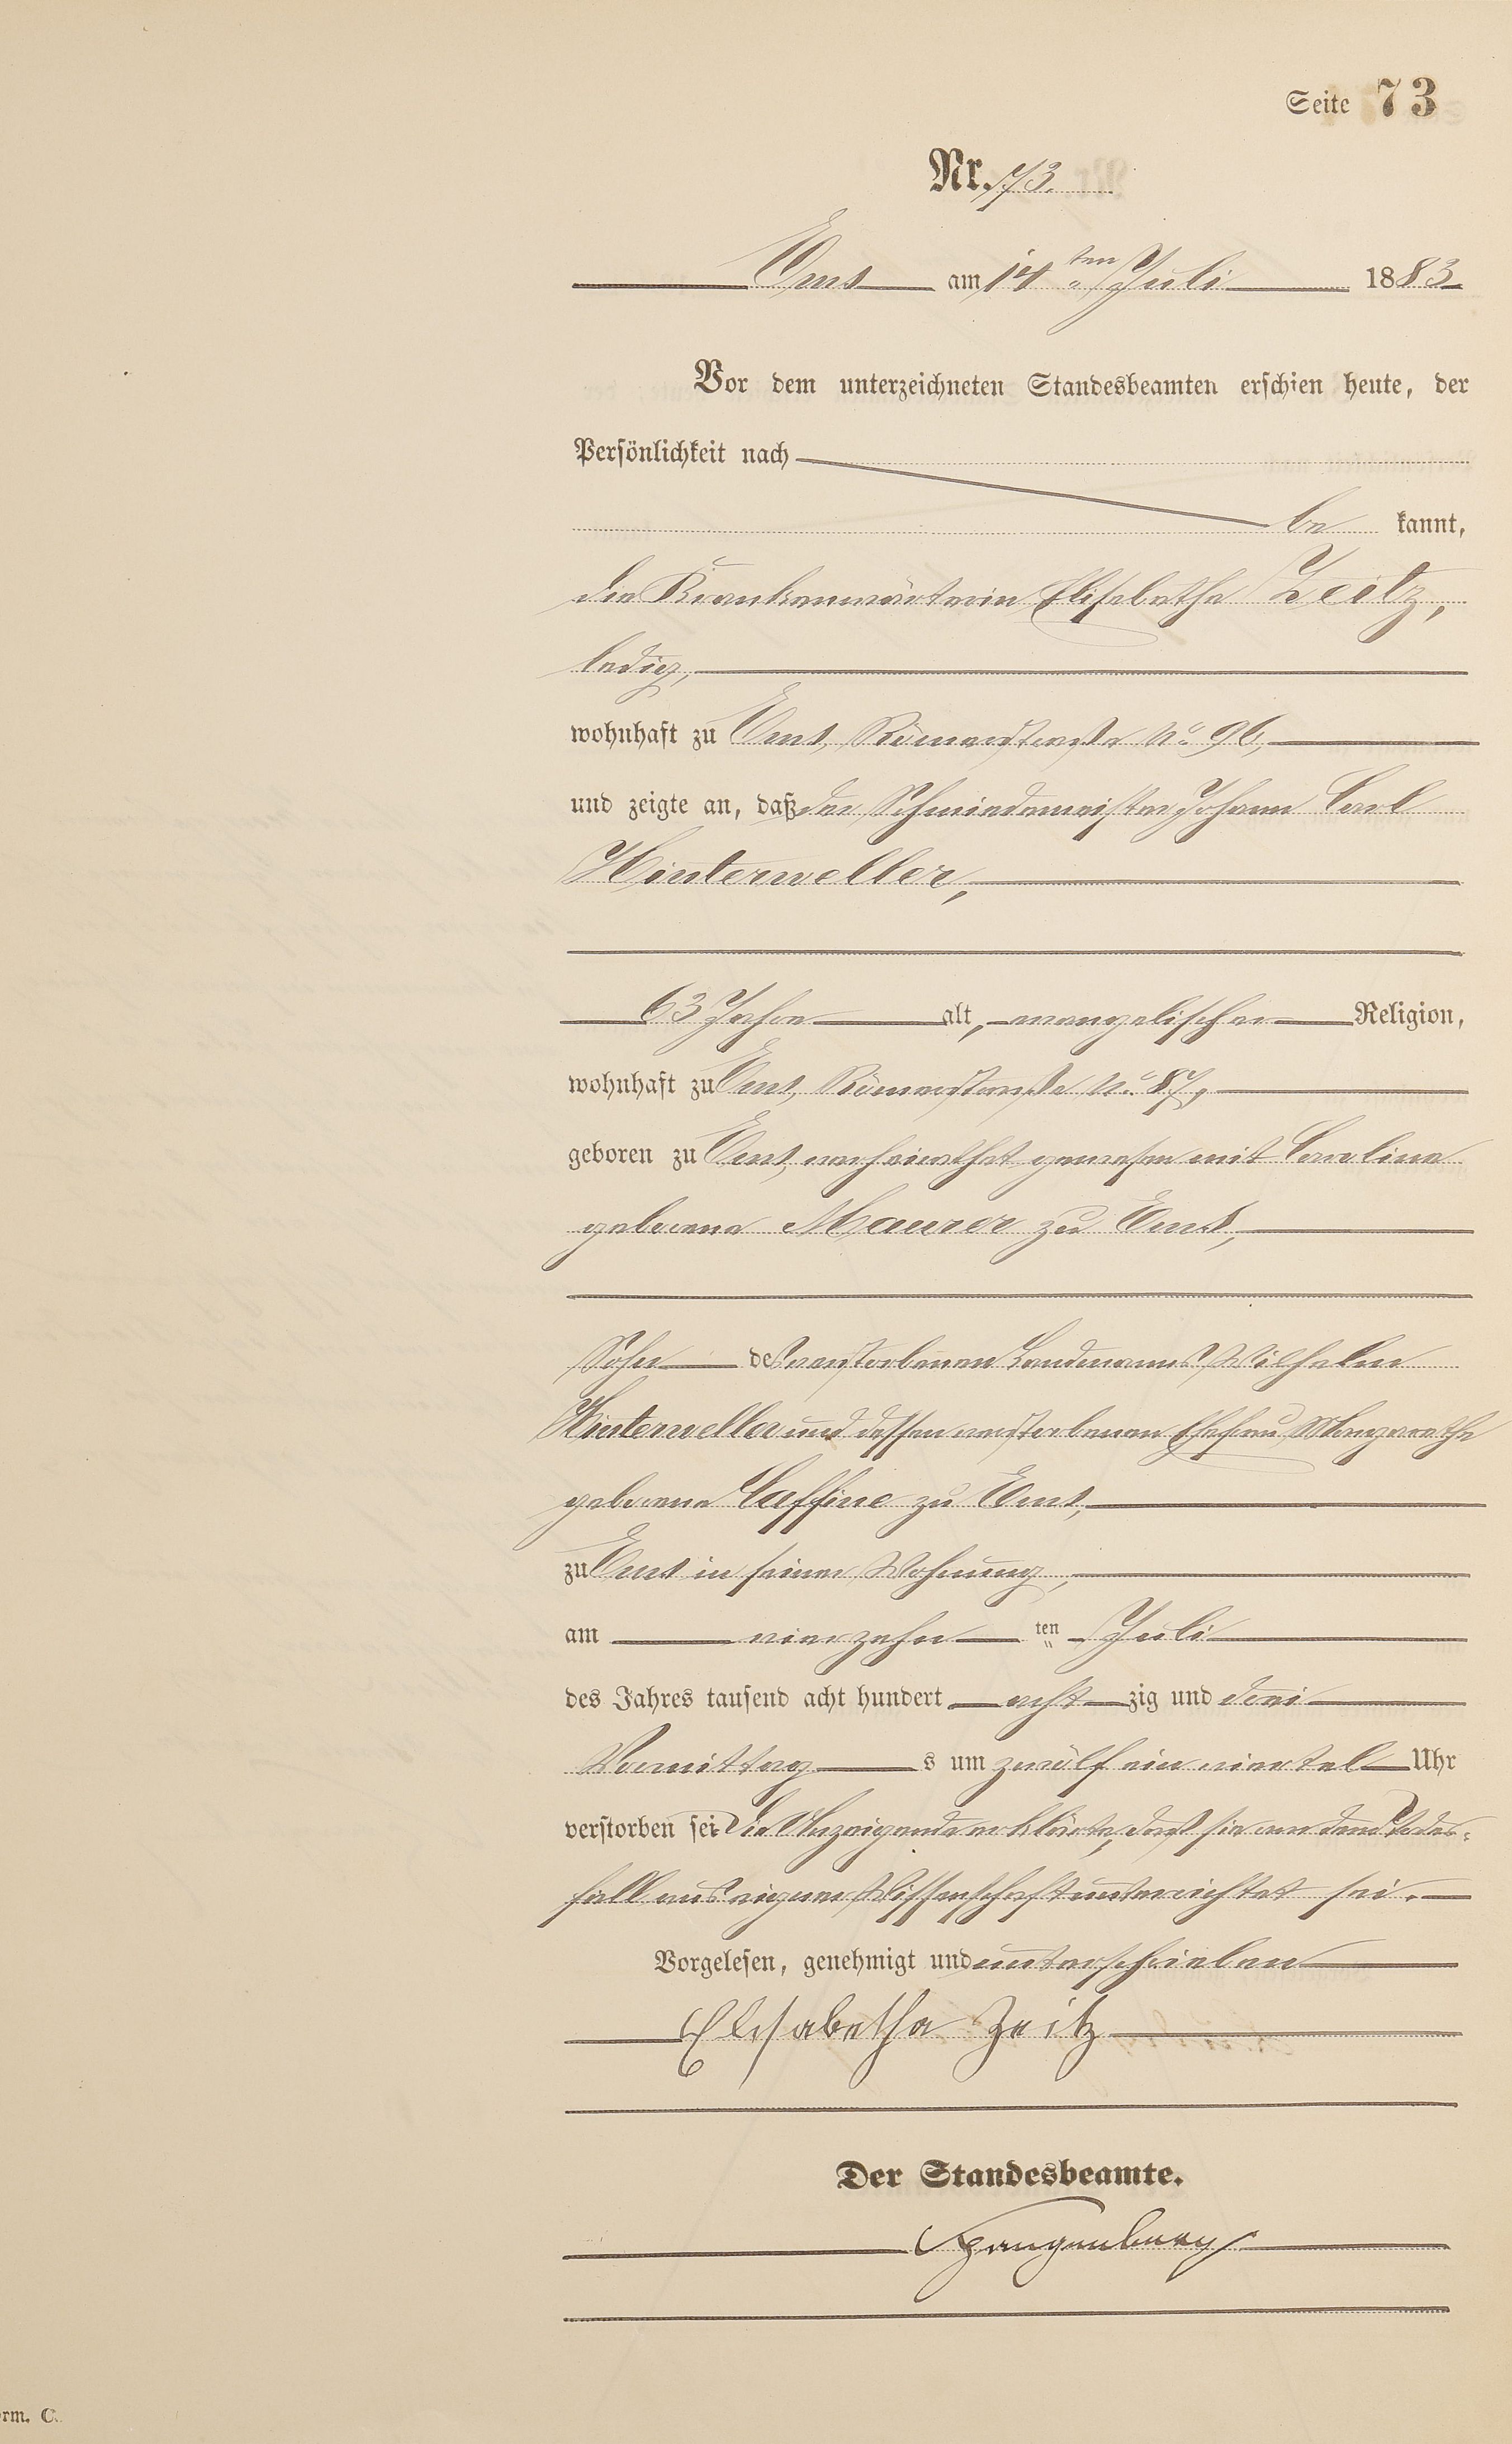 Seite 73
Nr. 73.
Ems am 14ten Juli 1883.
Vor dem unterzeichneten Standesbeamten erschien heute, der
Persönlichkeit nach
be kannt,
die Krankenwärterin Elisabetha Zeitz,
ledig,
wohnhaft zu Ems, Römerstraße No. 96,
und zeigte an, daß der Schmiedemeister Johann Carl
Hinterweller,
63 Jahre alt, evangelischer Religion,
wohnhaft zu Ems, Römerstraße No. 87,
geboren zu Ems, verheirathet gewesen mit Caroline
geborene Maurer zu Ems,
Sohn des verstorbenen Landmanns Wilhelm
Hinterweller und dessen verstorbenen Ehefrau Margarethe
geborene Caffine zu Ems,
zu Ems in seiner Wohnung,
am vierzehn ten Juli
des Jahres tausend acht hundert acht zig und drei
Vormittag s um zwölf ein viertel Uhr
verstorben sei. Die Anzeigende erklärte, daß sie von dem Todes-
fall aus eigener Wissenschaft unterrichtet sei.
Vorgelesen, genehmigt und unterschrieben
Elisabetha Zeitz
Der Standesbeamte.
Spangenberg
rm. C.